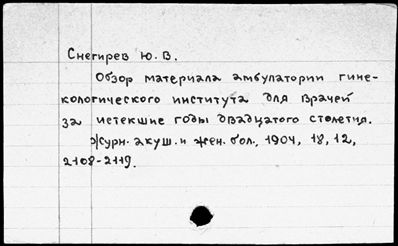 Снегирев Ю. В.
Обзор материала амбулатории гине-
кологического института для врачей
за истекшие годы двадцатого столетия.
Журн. акуш. и жен. бол., 1904, 18, 12,
2108-2119.